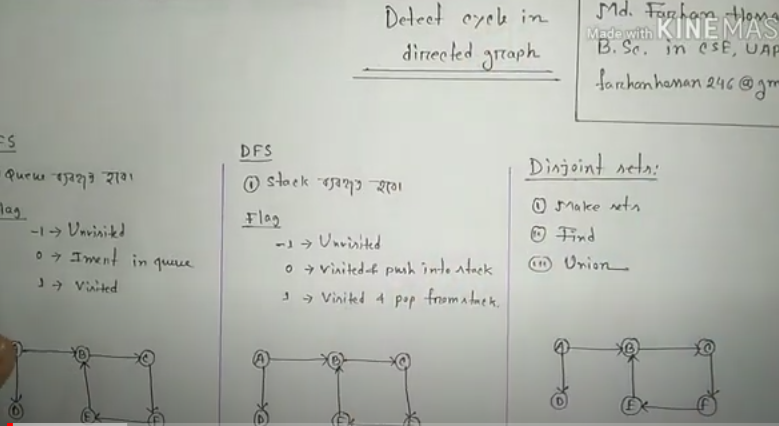 Detect cycle in
directed graph
Md. Farhan
B.Sc. in CSE, UAP
farhanhasan246@gm
Made with KINEMAS
FS
Queue ব্যবহৃত হবে।
lag
-1 → Unvisited
0 → Insert in queue
1 → Visited
A B C
D E F
DFS
① Stack ব্যবহৃত হবে।
Flag
-1 → Unvisited
0 → Visited & push into stack
1 → Visited & pop from stack.
A B C
D E F
Disjoint sets:
① Make sets
② Find
③ Union
A B C
D E F